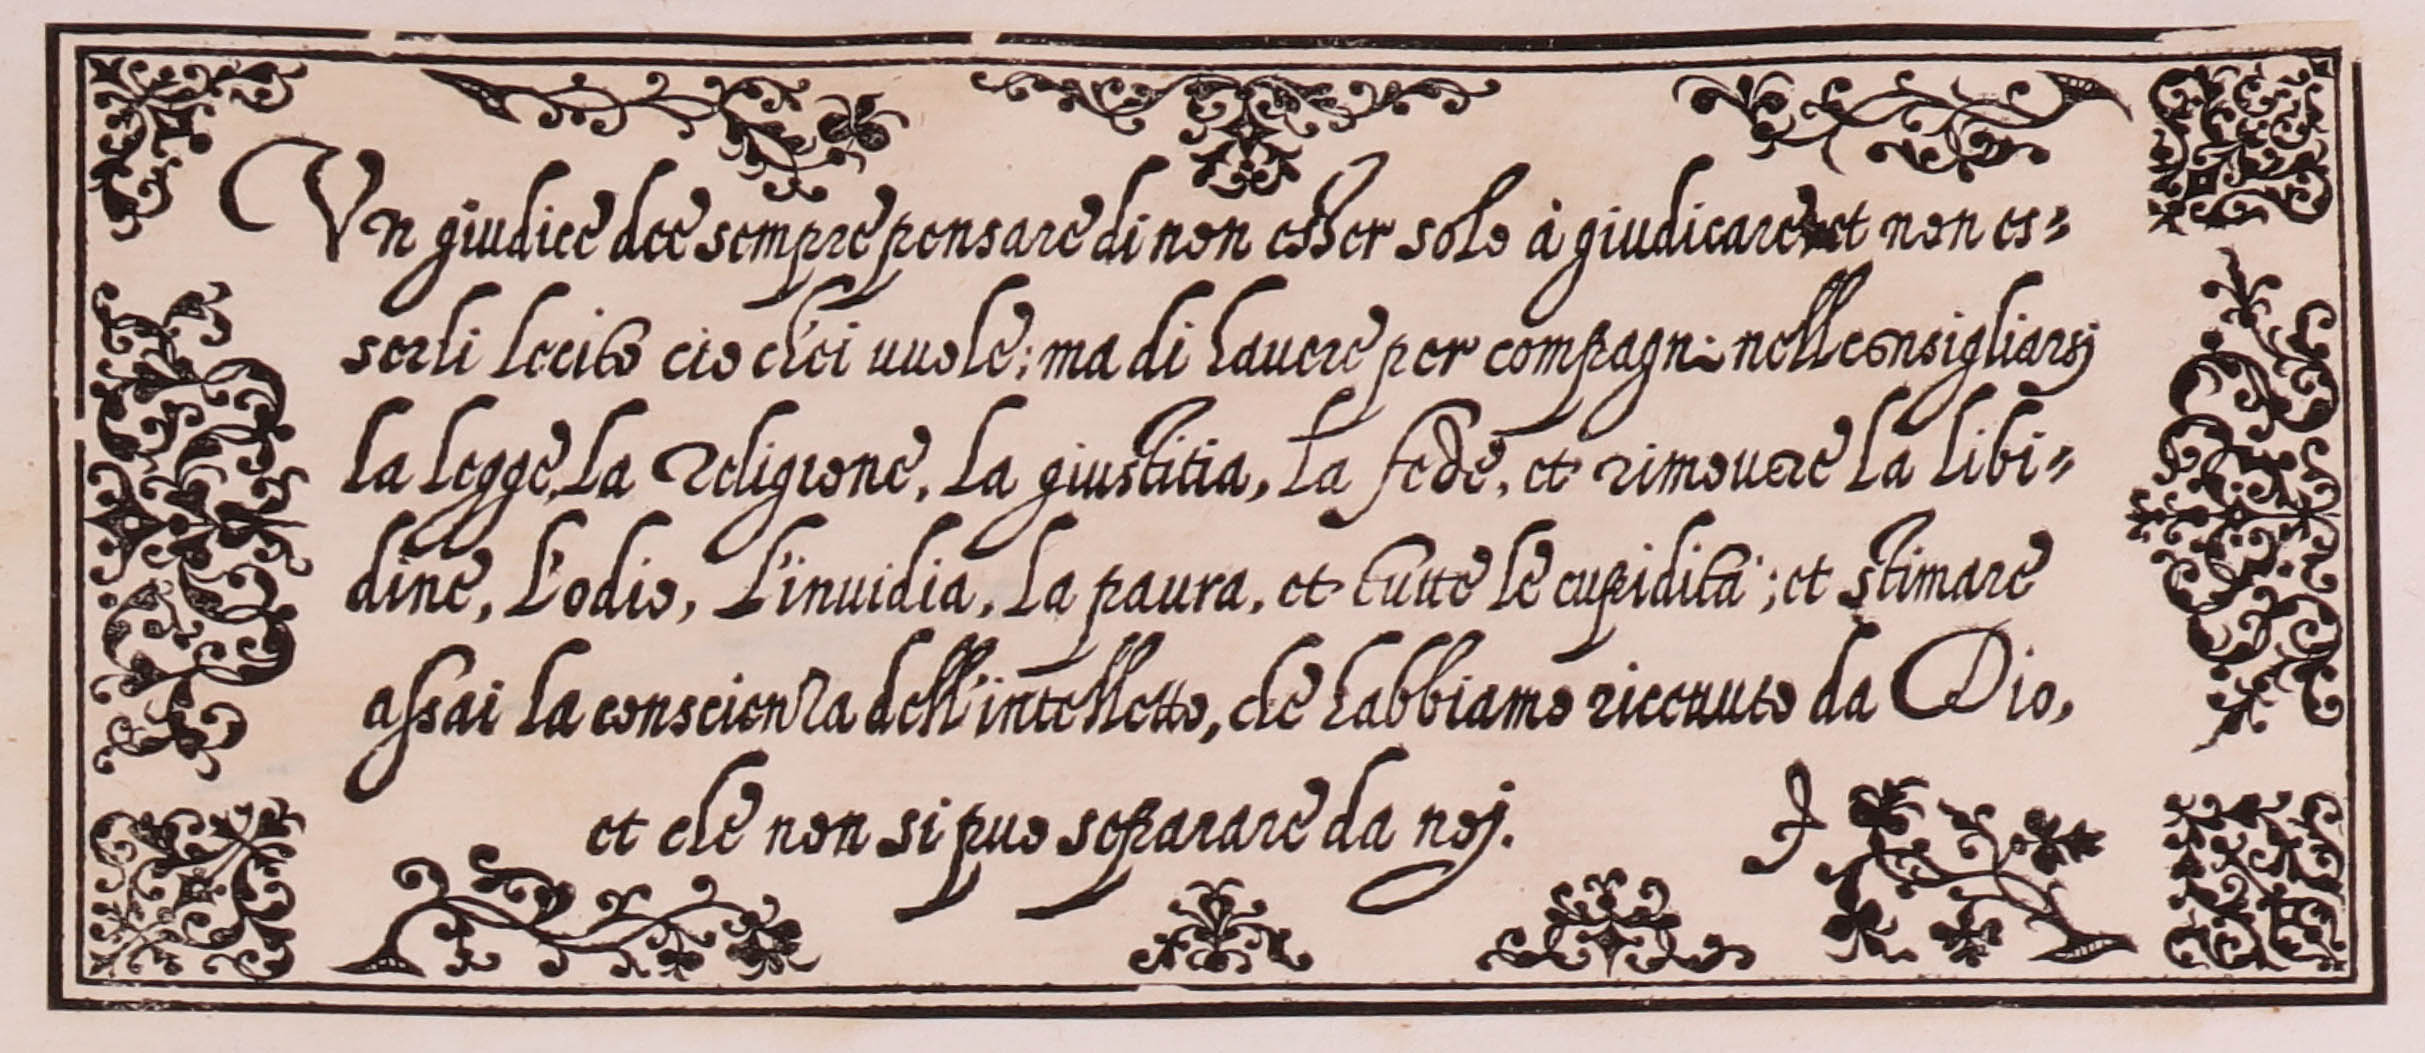 Vn giudice dee sempre pensare di non esser solo à giudicare et non es=
serli lecito cio ch'ei uuole; ma di hauere per compagni nell consigliarsj
la legge, la religione, la giustitia, la fede, et rimouere la libi=
dine, l'odio, l'inuidia, la paura, et tutte le cupidità; et stimare
assai la conscienza dell'intelletto, che habbiamo riceuuto da Dio,
et che non si puo separare da noj.